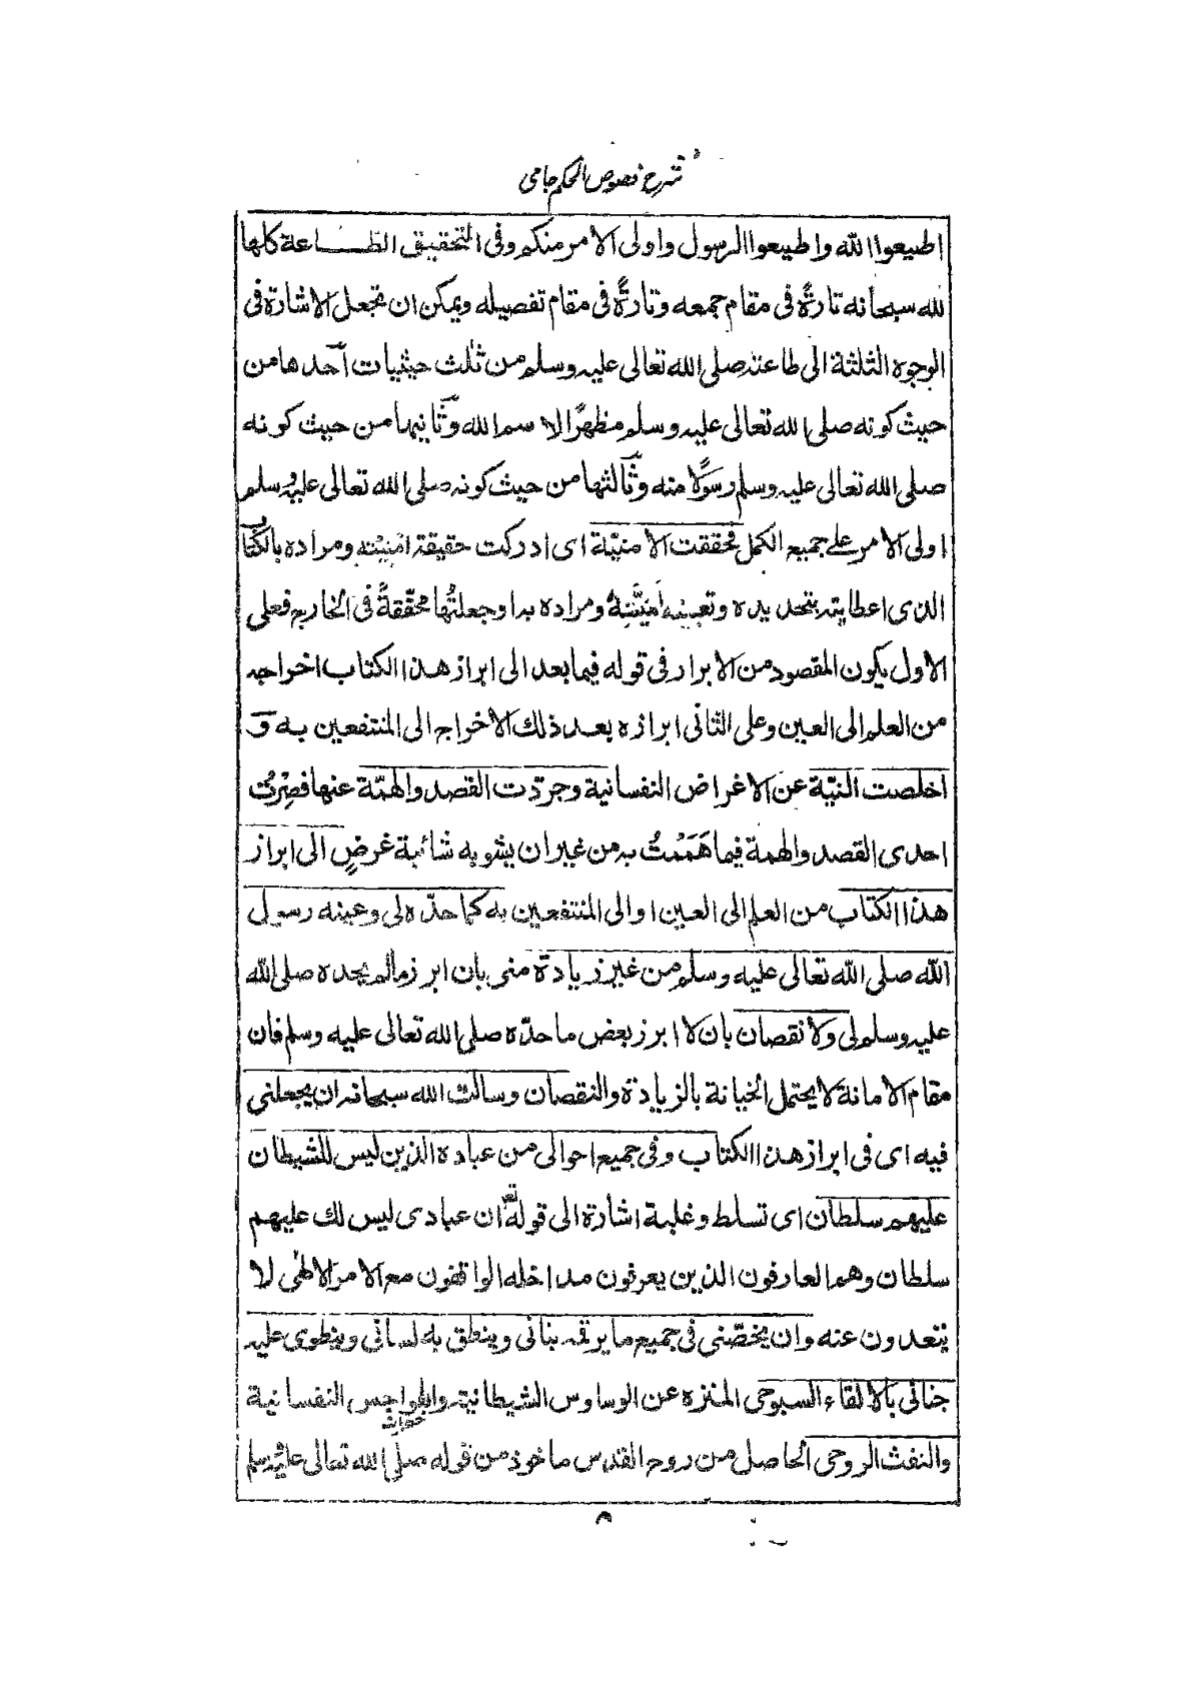 شرح فصوص الحکم جامی
اطيعوا الله واطيعوا الرسول واولى الامر منكم وفى التحقيق الطـاعة كلها
لله سبحانه تارةً فى مقام جمعه وتارةً فى مقام تفصيله ويمكن ان تجعل الاشارة فى
الوجوه الثلثة الى طاعته صلى الله تعالى عليه وسلم من ثلث حيثيات آحدها من
حيث كونه صلى الله تعالى عليه وسلم مظهرًا لا سم الله وثانيها من حيث كونه
صلى الله تعالى عليه وسلم رسولًا منه وثالثها من حيث كونه صلى الله تعالى عليه وسلم
اولى الامر على جميع الكمل فحققت الامنيّة اى ادركت حقيقة امنيته ومراده بالكتاب
الذى اعطايته بتحديده وتعيينه امنيّتهٗ ومراده بدا وجعلتُها محقّقةً فى الخارج فعلى
الاول يكون المقصود من الابراز فى قوله فيما بعد الى ابراز هذا الكتاب اخراجه
من العلم الى العين وعلى الثانى ابرازه بعد ذلك الاخراج الى المنتفعين به وَ
اخلصت النيّة عن الاغراض النفسانية وجرّدت القصد والهمّة عنها فصِرْتُ
احدى القصد والهمة فيما هَمَمْتُ به من غير ان يشوبه شائبة غرضٍ الى ابراز
هذا الكتاب من العلم الى العين او الى المنتفعين به كما حدّه لى وعينه رسول
الله صلى الله تعالى عليه وسلم من غير زيادة منى بان ابرز مالم يحده صلى الله
عليه وسلم لى ولا نقصان بان لا ابرز بعض ما حدّه صلى الله تعالى عليه وسلم فان
مقام الامانة لا يحتمل الخيانة بالزيادة والنقصان وسالت الله سبحانه ان يجعلنى
فيه اى فى ابراز هذا الكتاب وفى جميع احوالى من عباده الذين ليس للشيطان
عليهم سلطان اى تسلط وغلبة اشارة الى قوله تع ان عبادى ليس لك عليهم
سلطان وهم العارفون الذين يعرفون مداخله الواقفون مع الامر الالهٰى لا
يتعدون عنه وان يخصّنى فى جميع ما يرقمه بنانى وينطق به لسانى وينطوى عليه
جنانى بالالقاء السبوحى المنزه عن الوساوس الشيطانية والهواجس النفسانية
والنفث الروحى الحاصل من روح القدس ماخوذ من قوله صلى الله تعالى عليه وسلم
٨